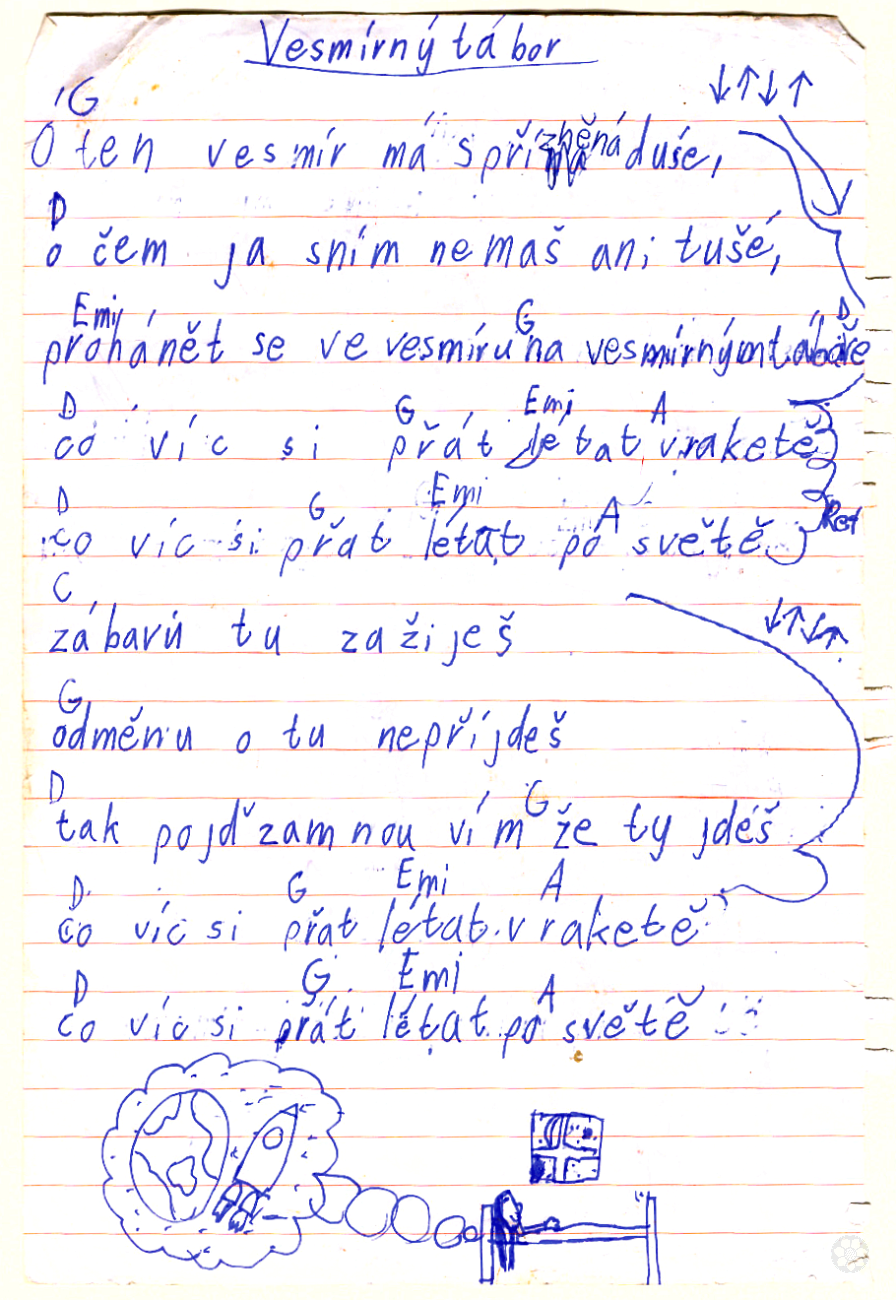 Vesmírný tábor
↓↑↓↑
G
O ten vesmír má spřízněná duše,
D
o čem ja sním nemaš ani tušé,
Emi G D
prohánět se ve vesmíru na vesmírným tábóře
D G Emi A
co víc si přát létat v raketě
D G Emi A
co víc si přat létat po světě Ref
C ↓↑↓↑
zábavú tu zažiješ
G
odměnu o tu nepříjdeš
D G
tak pojď zamnou vím že ty jdéš
D G Emi A
co víc si přat létat v raketě
D G Emi A
co víc si přát létat po světě